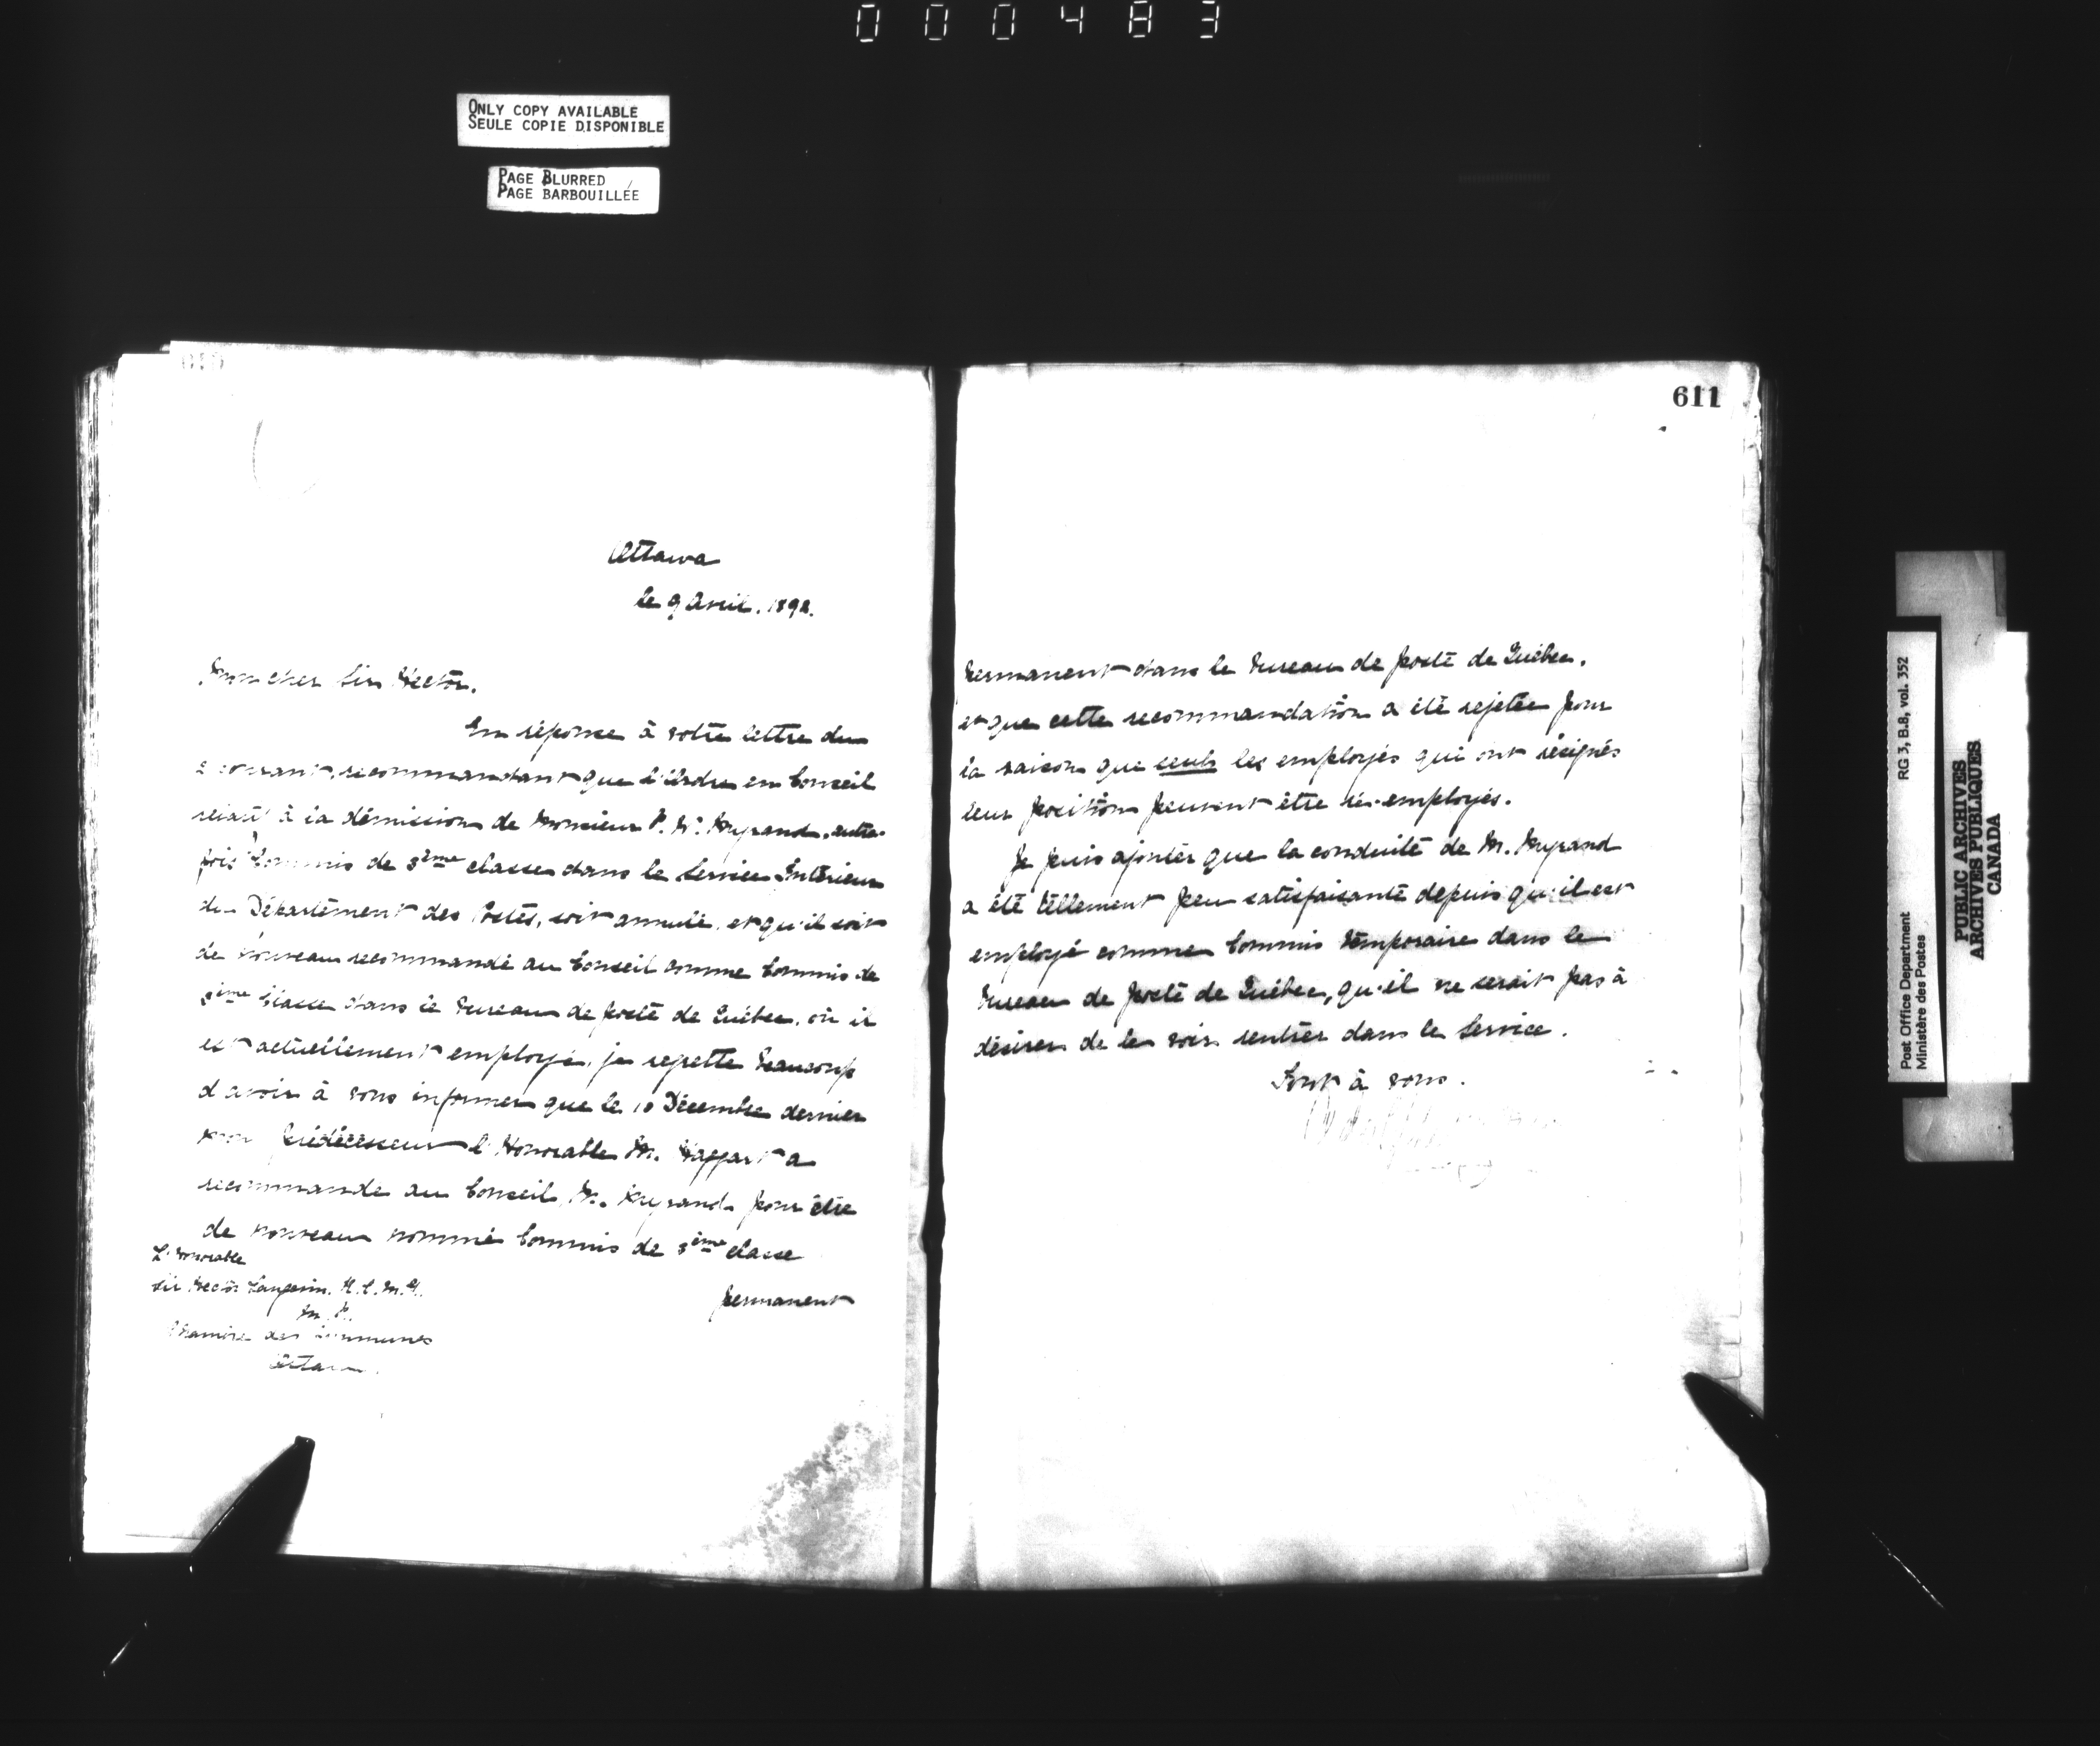 000483
ONLY COPY AVAILABLE
SEULE COPIE DISPONIBLE
PAGE BLURRED
PAGE BARBOUILLÉE
610
Ottawa
le 9 Avril. 1892.
Mon cher Sir Hector,
En réponse à votre lettre du
courant, recommandant que l'Ordre en Conseil
relatif à la démission de Monsieur P. Myrand, autre-
fois Commis de 3ème classe dans le Service Intérieur
du Département des Postes, soit annulé, et qu'il soit
de nouveau recommandé au Conseil comme Commis de
3ème Classe dans le Bureau de poste de Québec, où il
est actuellement employé, je regrette beaucoup
d'avoir à vous informer que le 10 Décembre dernier
mon Prédécesseur l'Honorable M. Haggart a
recommandé au Conseil, M. Myrand pour être
de nouveau nommé Commis de 3ème classe
permanent
L'Honorable
Sir Hector Langevin, K.C.M.G.
M.P.
Chambre des Communes
Ottawa.
611
Permanent dans le Bureau de poste de Québec,
et que cette recommandation a été rejetée pour
la raison que seuls les employés qui ont résignés
leur position peuvent être ré-employés.
Je puis ajouter que la conduite de M. Myrand
a été tellement peu satisfaisante depuis qu'il est
employé comme Commis temporaire dans le
Bureau de poste de Québec, qu'il ne serait pas à
désirer de le voir rentrer dans le Service.
Tout à vous.
Post Office Department
Ministère des Postes
RG 3, B.8, vol. 352
PUBLIC ARCHIVES
ARCHIVES PUBLIQUES
CANADA